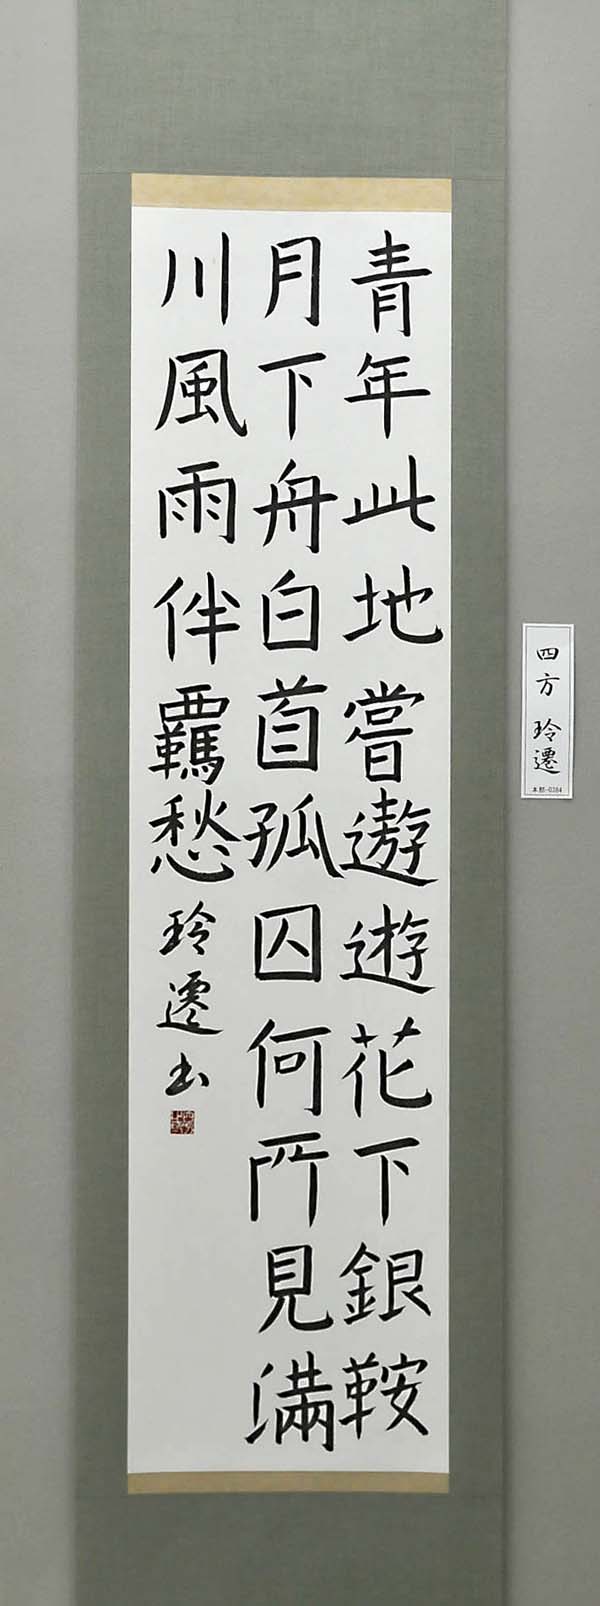 青年此地嘗遨遊花下銀鞍
月下舟白首孤囚何所見満
川風雨伴羈愁 玲遷書
四方 玲遷
本部-0384